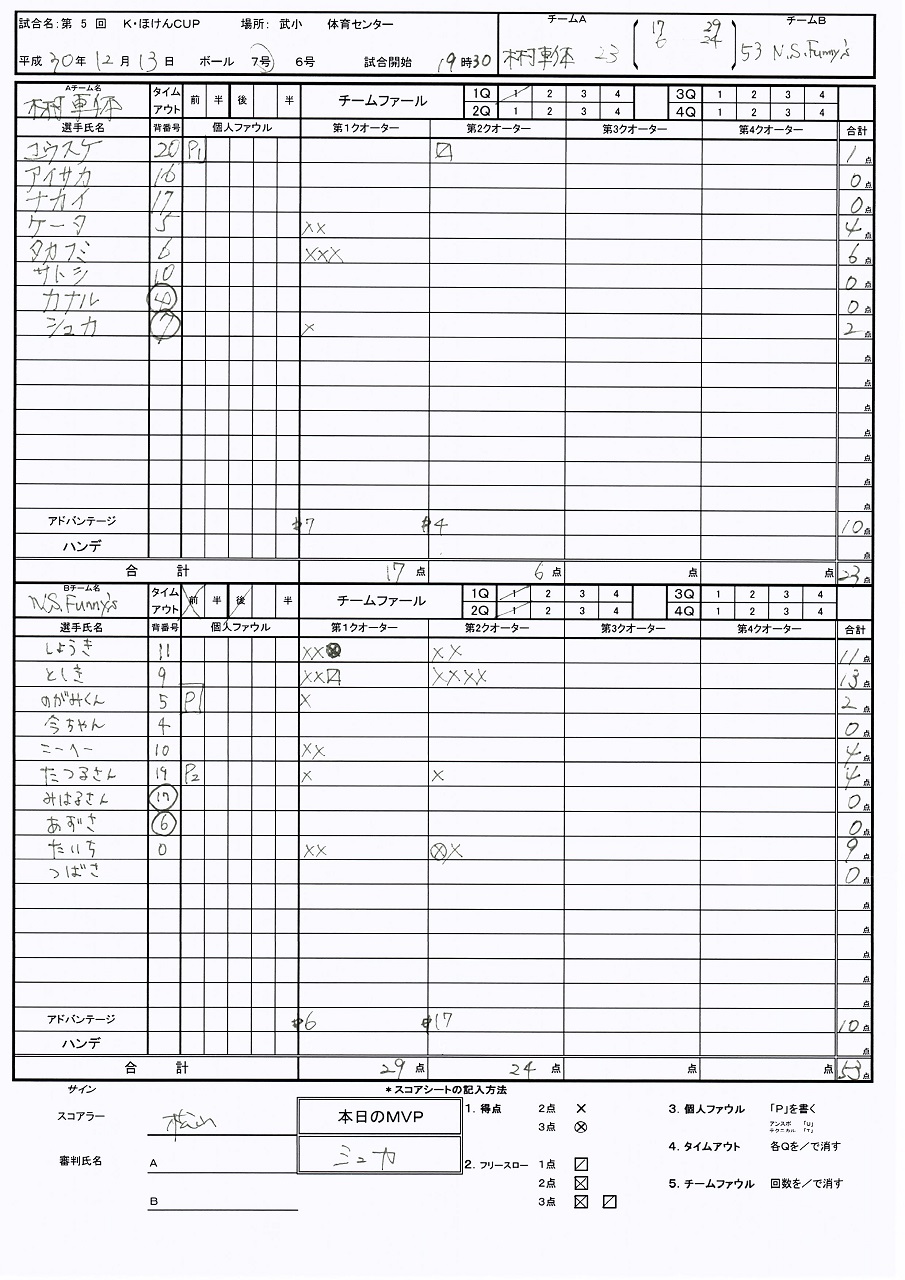 試合名:第 5 回 K・ほけんCUP 場所: 武小 体育センター
平成 30年 12月 13日 ボール 7号 6号 試合開始 19時30
チームA 17 29 チームB
木村車体 23 6 24 53 N.S.Funny's
Aチーム名 木村車体 タイムアウト 前 半 後 半 チームファール 1Q 1 2 3 4 3Q 1 2 3 4
2Q 1 2 3 4 4Q 1 2 3 4
選手氏名 背番号 個人ファウル 第1クオーター 第2クオーター 第3クオーター 第4クオーター 合計
コウスケ 20 P1 1点
アイサカ 16 0点
ナカイ 17 0点
ケータ 5 XX 4点
タカフミ 6 XXX 6点
サトシ 10 0点
カナル 0点
シュカ 7 X 2点
点
点
点
点
点
点
点
アドバンテージ 7 4 10点
ハンデ 点
合 計 17点 6点 点 点 23点
Bチーム名 N.S.Funny's タイムアウト 前 半 後 半 チームファール 1Q 1 2 3 4 3Q 1 2 3 4
2Q 1 2 3 4 4Q 1 2 3 4
選手氏名 背番号 個人ファウル 第1クオーター 第2クオーター 第3クオーター 第4クオーター 合計
しょうき 11 XX⊗ XX 11点
としき 9 XX〼 XXXX 13点
のがみくん 5 P1 X 2点
今ちゃん 4 0点
こーへー 10 XX 4点
たつるさん 19 P2 X X 4点
みはるさん 17 0点
あずさ 6 0点
たいち 0 XX ⊗X 9点
つばさ 0点
点
点
点
点
点
アドバンテージ 6 17 10点
ハンデ 点
合 計 29点 24点 点 点 53点
サイン *スコアシートの記入方法
スコアラー 本日のMVP
シュカ
審判氏名 A
B
1. 得点 2点 ×
3点 ⊗
2. フリースロー 1点 〼
2点 ☒
3点 ☒ 〼
3. 個人ファウル 「P」を書く
アンスポ 「U」
テクニカル 「T」
4. タイムアウト 各Qを/で消す
5. チームファウル 回数を/で消す